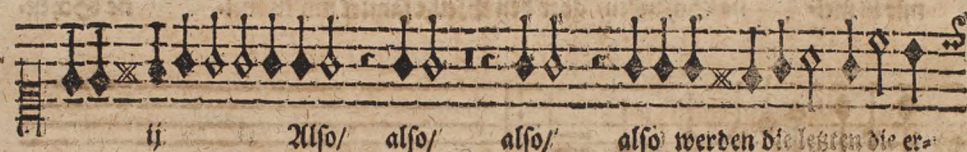 ij Also/ also/ also/ also werden die letzten die er⸗